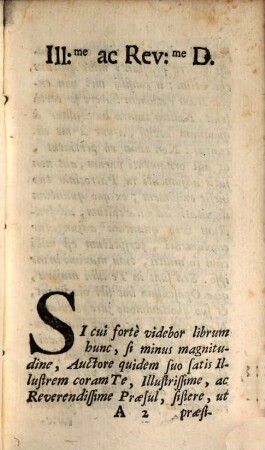 Ill:me ac Rev:me D.
SI cui fortè videbor librum
hunc, si minus magnitu-
dine, Auctore quidem suo satis Il-
lustrem coram Te, Illustrissime, ac
Reverendissime Præsul, sistere, ut
A 2 præsi-